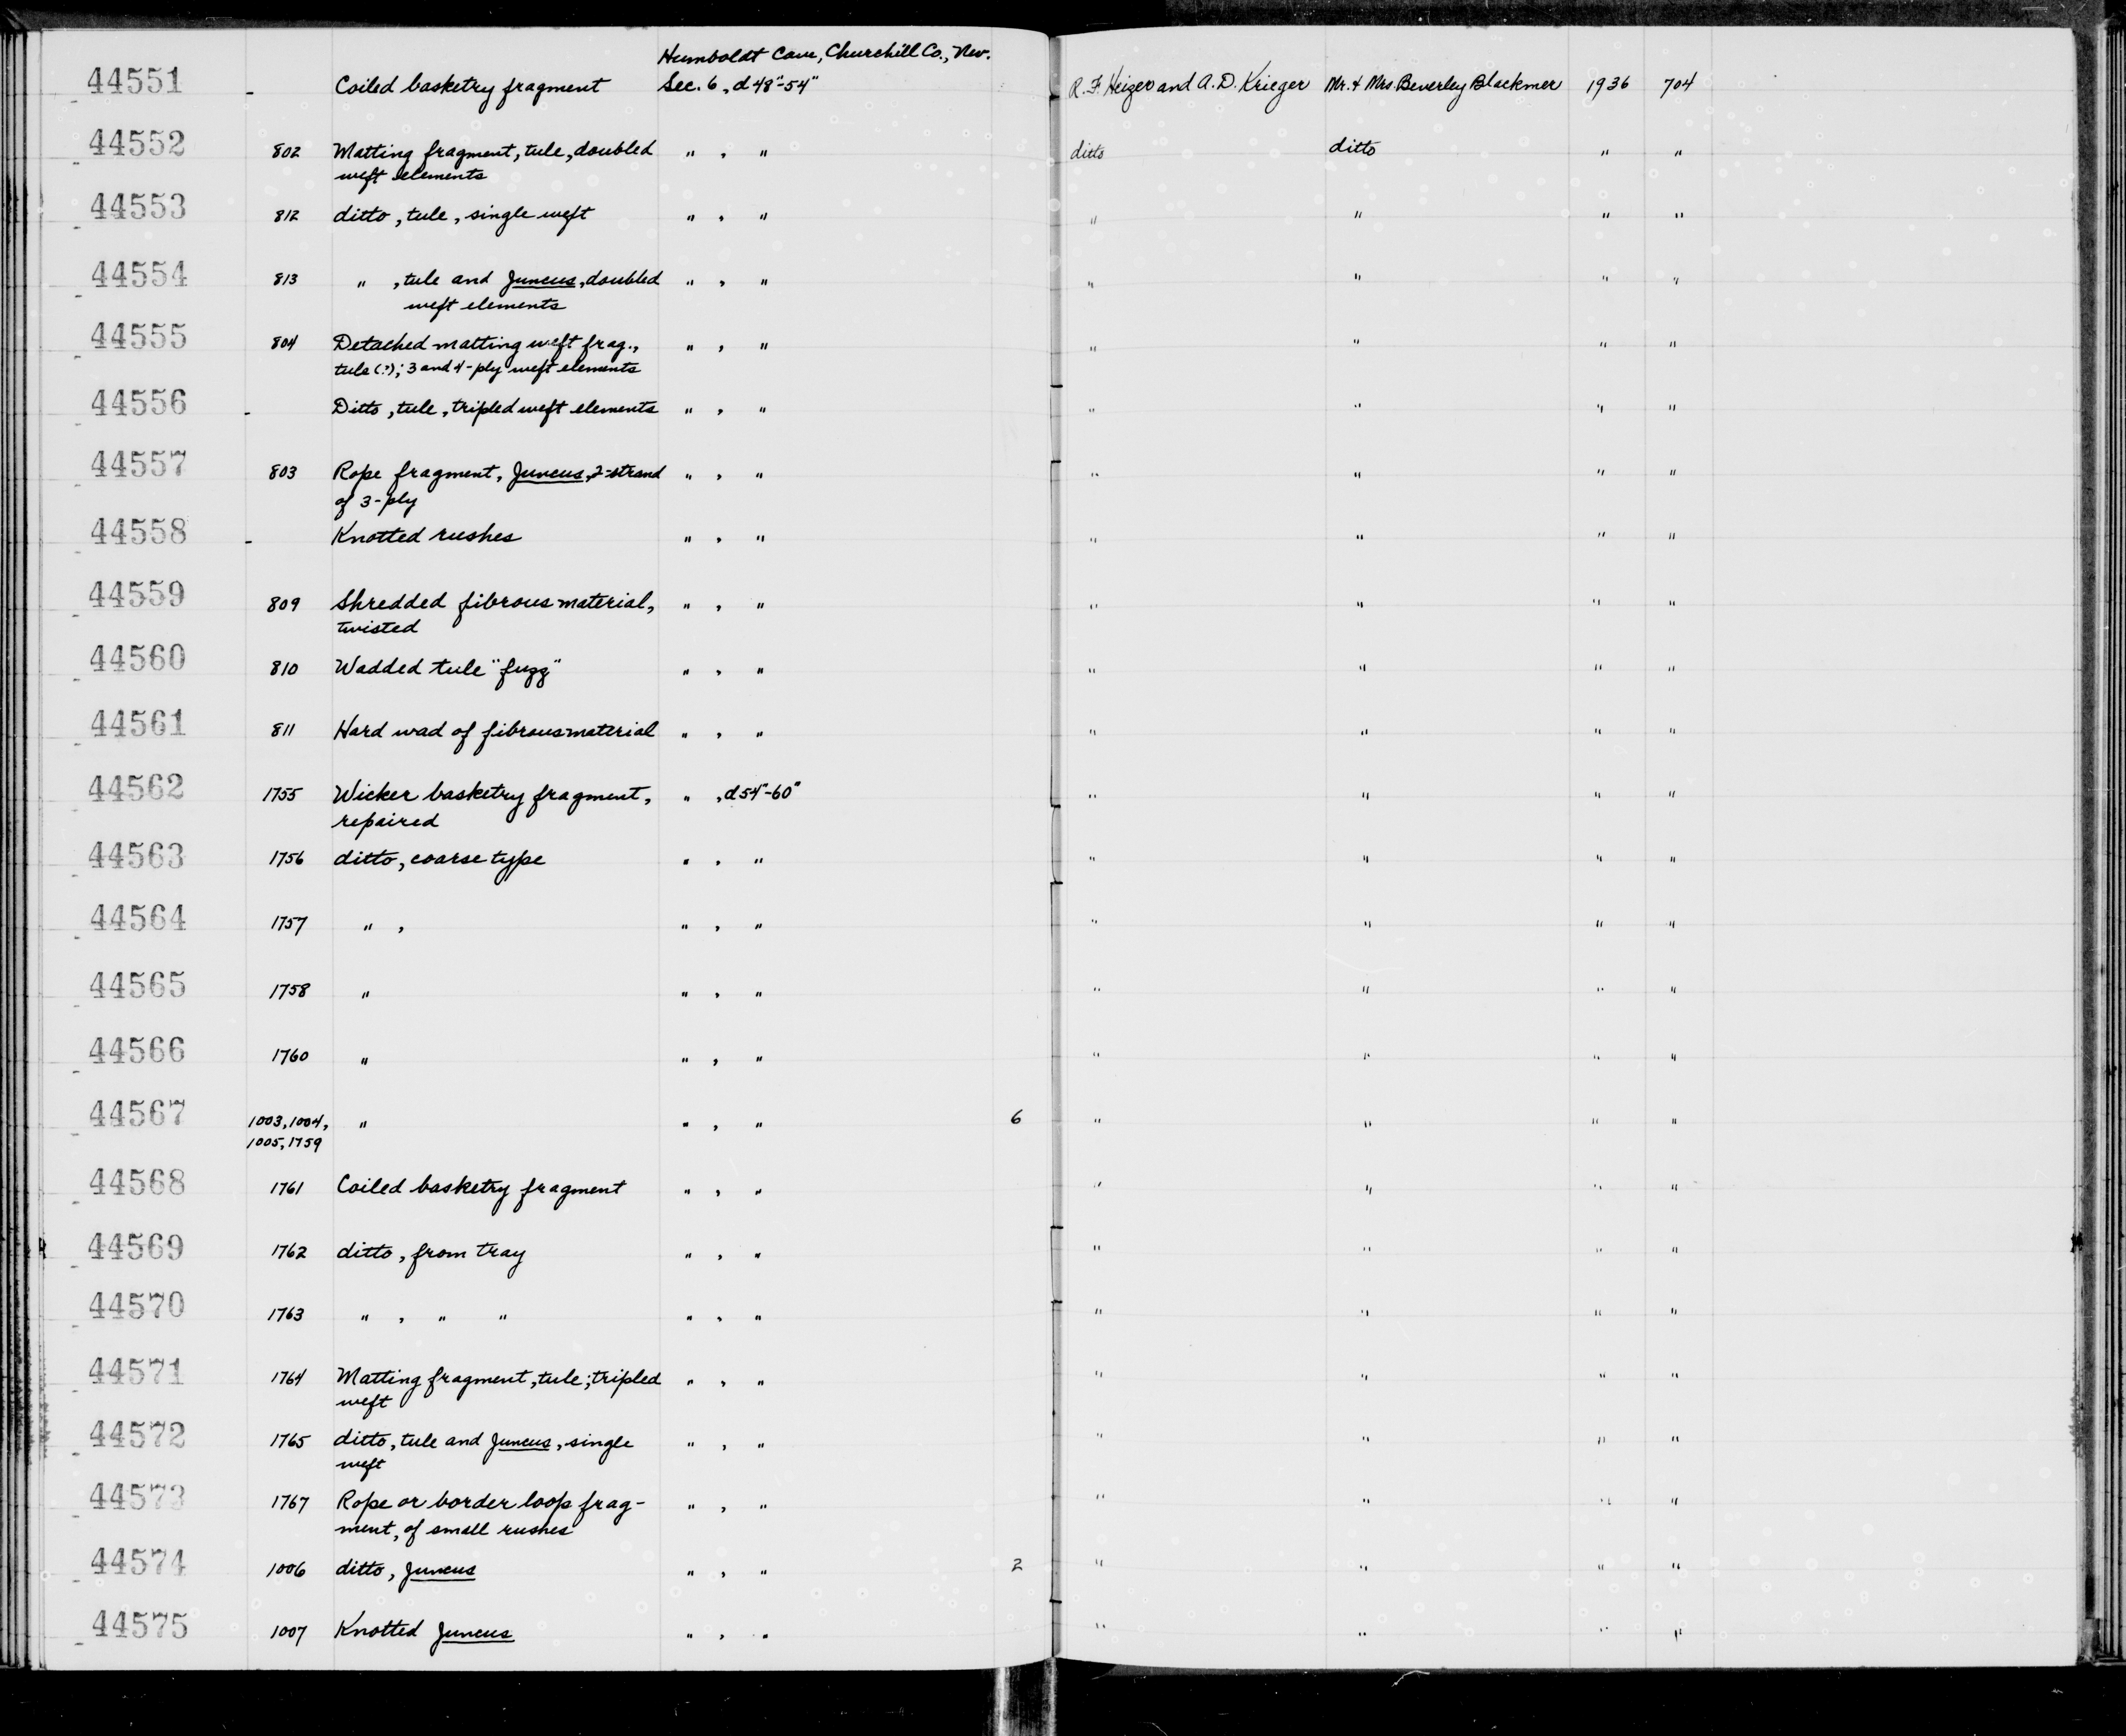 Humboldt Cave, Churchill Co., Nev.
44551 - Coiled basketry fragment Sec. 6, d 48"-54" R. F. Heizer and A. D. Krieger Mr. & Mrs. Beverley Blackmer 1936 704
44552 802 Matting fragment, tule, doubled " , " ditto ditto " "
weft elements
44553 812 ditto, tule, single weft " , " " " " "
44554 813 " , tule and Juncus, doubled " , " " " " "
weft elements
44555 804 Detached matting weft frag., " , " " " " "
tule (?); 3 and 4-ply weft elements
44556 - Ditto, tule, tripled weft elements " , " " " " "
44557 803 Rope fragment, Juncus, 2-strand " , " " " " "
of 3-ply
44558 - Knotted rushes " , " " " " "
44559 809 Shredded fibrous material, " , " " " " "
twisted
44560 810 Wadded tule "fuzz" " , " " " " "
44561 811 Hard wad of fibrous material " , " " " " "
44562 1755 Wicker basketry fragment, " , d 54"-60" " " " "
repaired
44563 1756 ditto, coarse type " , " " " " "
44564 1757 " , " , " " " " "
44565 1758 " " , " " " " "
44566 1760 " " , " " " " "
44567 1003, 1004, " " , " 6 " " " "
1005, 1759
44568 1761 Coiled basketry fragment " , " " " " "
44569 1762 ditto, from tray " , " " " " "
44570 1763 " , " " " , " " " " "
44571 1764 Matting fragment, tule; tripled " , " " " " "
weft
44572 1765 ditto, tule and Juncus, single " , " " " " "
weft
44573 1767 Rope or border loop frag- " , " " " " "
ment, of small rushes
44574 1006 ditto, Juncus " , " 2 " " " "
44575 1007 Knotted Juncus " , " " " " "